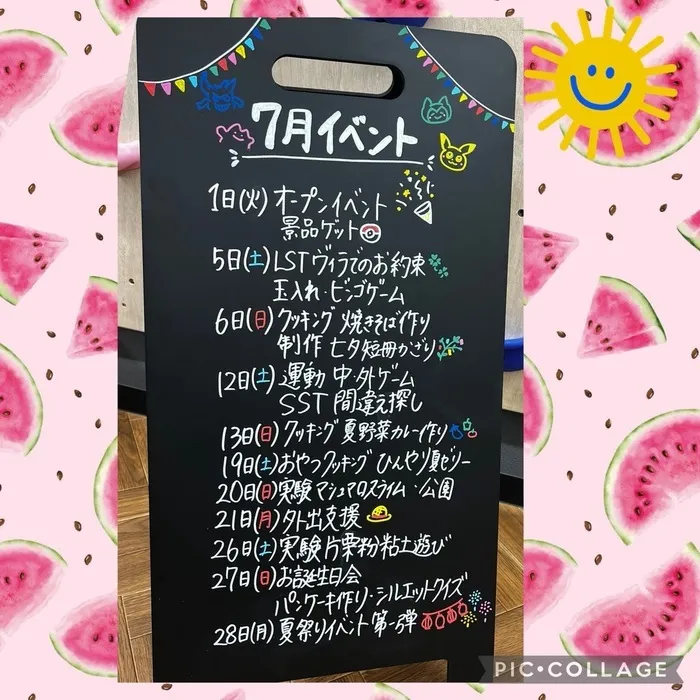 7月イベント
1日(火) オープンイベント
景品ゲット
5日(土) LST ヴィラでのお約束
玉入れ・ビンゴゲーム
6日(日) クッキング 焼きそば作り
制作 七夕短冊かざり
12日(土) 運動 中・外ゲーム
SST 間違え探し
13日(日) クッキング 夏野菜カレー作り
19日(土) おやつクッキング ひんやり夏ゼリー
20日(日) 実験 マシュマロスライム・公園
21日(月) 外出支援
26日(土) 実験 片栗粉粘土遊び
27日(日) お誕生日会
パンケーキ作り・シルエットクイズ
28日(月) 夏祭りイベント 第一弾
PIC•COLLAGE